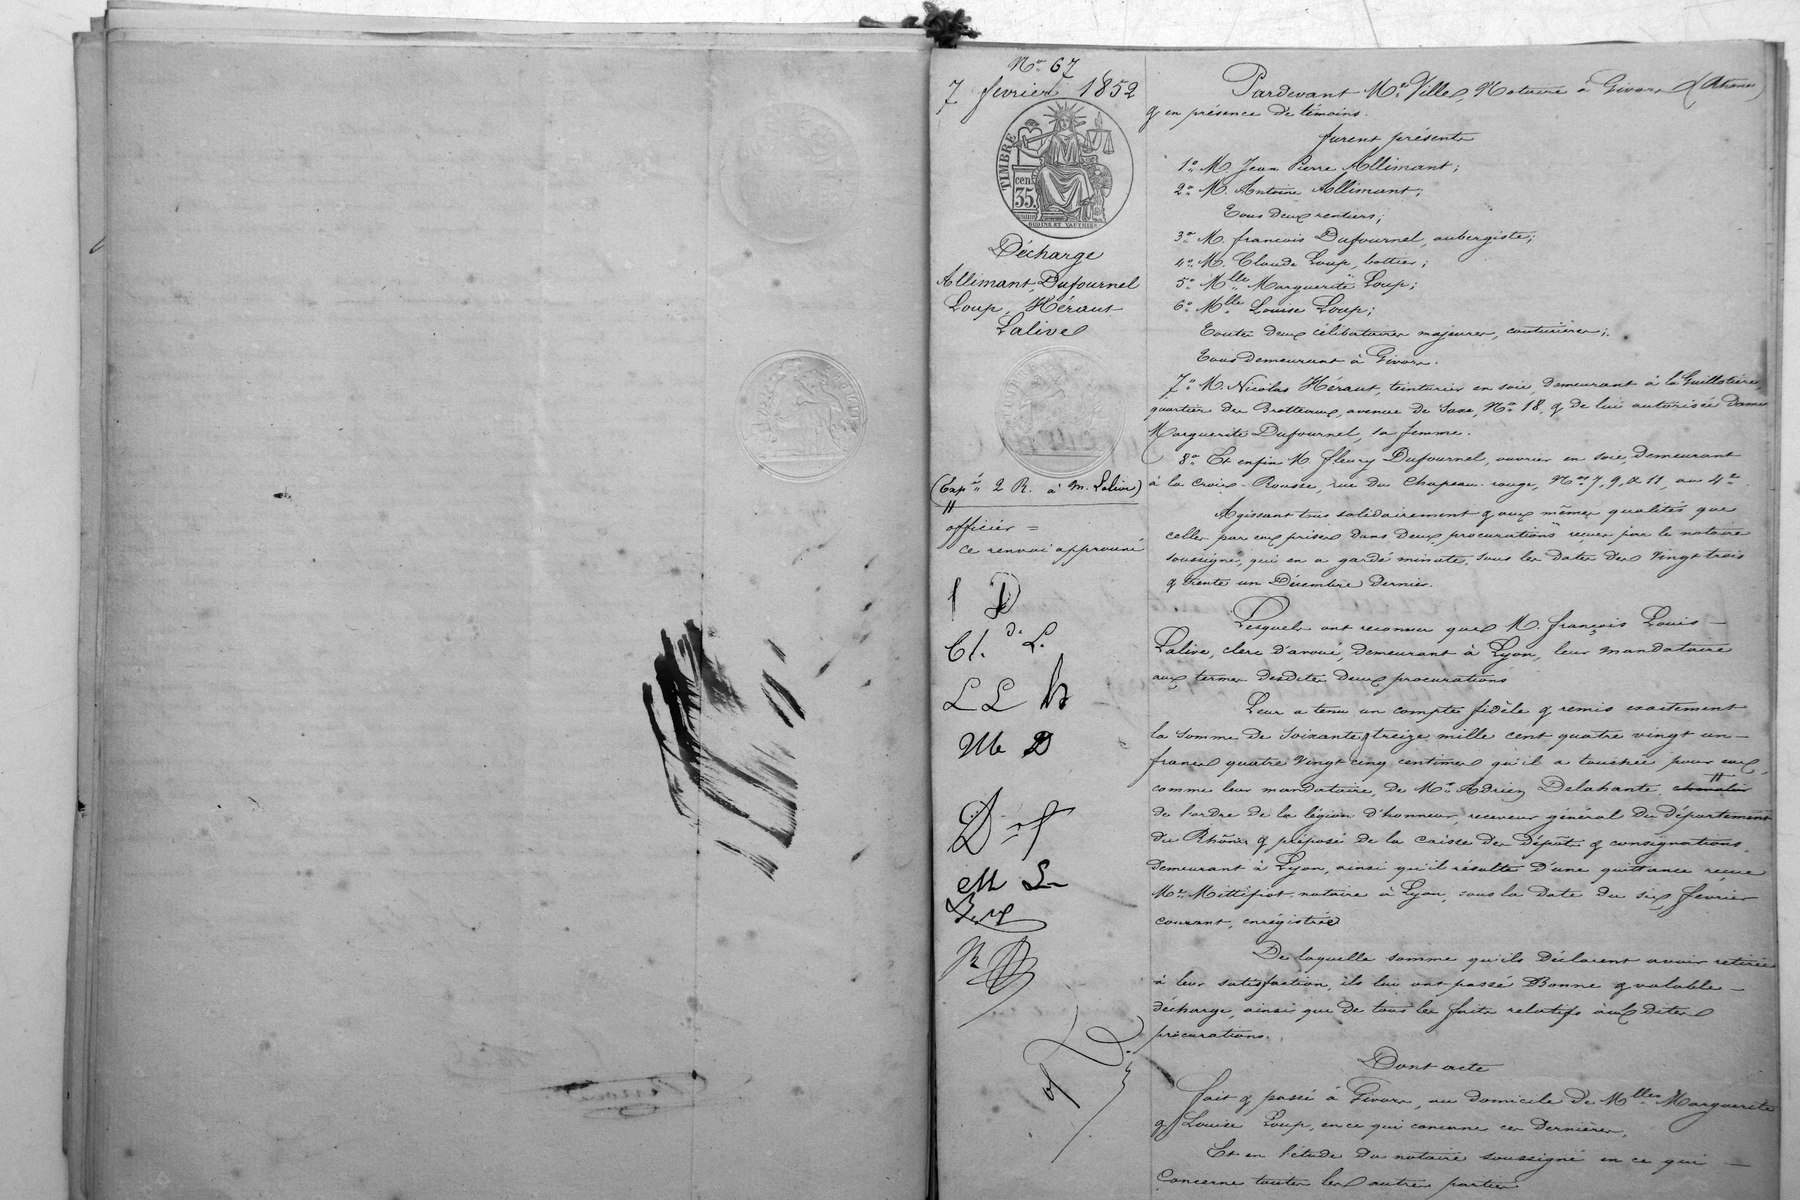 N° 67
7 février 1852
TIMBRE
cent.
35.
Décharge
Allimant, Dufournel
Loup, Héraut
Lalive
(Exp 2 R. à M. Lalive)
officier =
ce renvoi approuvé
1 D
Cl. de L.
L L h
M D
D f
M L
R
Pardevant Me Ville, Notaire à Givors (Rhône)
& en présence de témoins.
furent présents
1° M. Jean Pierre Allimant;
2° M. Antoine Allimant;
Tous deux rentiers;
3° M. françois Dufournel, aubergiste;
4° M. Claude Loup, bottier;
5° Mlle Marguerite Loup;
6° Mlle Louise Loup;
Toutes deux célibataires majeures, couturières;
Tous demeurant à Givors.
7° M. Nicolas Héraut, teinturier en soie, demeurant à la Guillotière,
quartier des Brotteaux, avenue de Saxe, N° 18, & de lui autorisée Dame
Marguerite Dufournel, sa femme.
8° Et enfin M. fleury Dufournel, ouvrier en soie, demeurant
à la Croix-Rousse, rue du Chapeau rouge, Nos 7, 9, & 11, au 4e
Agissant tous solidairement & aux mêmes qualités que
celles par eux prises dans deux procurations reçues par le notaire
soussigné, qui en a gardé minute, sous les dates des vingt trois
& trente un Décembre dernier.
Lesquels ont reconnu que M. françois Louis
Lalive, clerc d'avoué, demeurant à Lyon, leur mandataire
aux termes desdites deux procurations
Leur a tenu un compte fidèle & remis exactement
la somme de soixante & treize mille cent quatre vingt un
francs quatre vingt cinq centimes qu'il a touchée pour eux,
comme leur mandataire, de Mr Adrien Delahante, chevalier
de l'ordre de la légion d'honneur, receveur général du département
du Rhône & préposé de la caisse des dépôts & consignations,
demeurant à Lyon, ainsi qu'il résulte d'une quittance reçue
Me Mittifiot, notaire à Lyon, sous la date du six février
courant, enregistrée
De laquelle somme qu'ils déclarent avoir retirée
à leur satisfaction, ils lui ont passé Bonne & valable
décharge, ainsi que de tous les faits relatifs aux dites
procurations.
Dont acte
fait & passé à Givors, au domicile de Mlles Marguerite
& Louise Loup, en ce qui concerne ces dernières,
Et en l'étude du notaire soussigné en ce qui
concerne toutes les autres parties